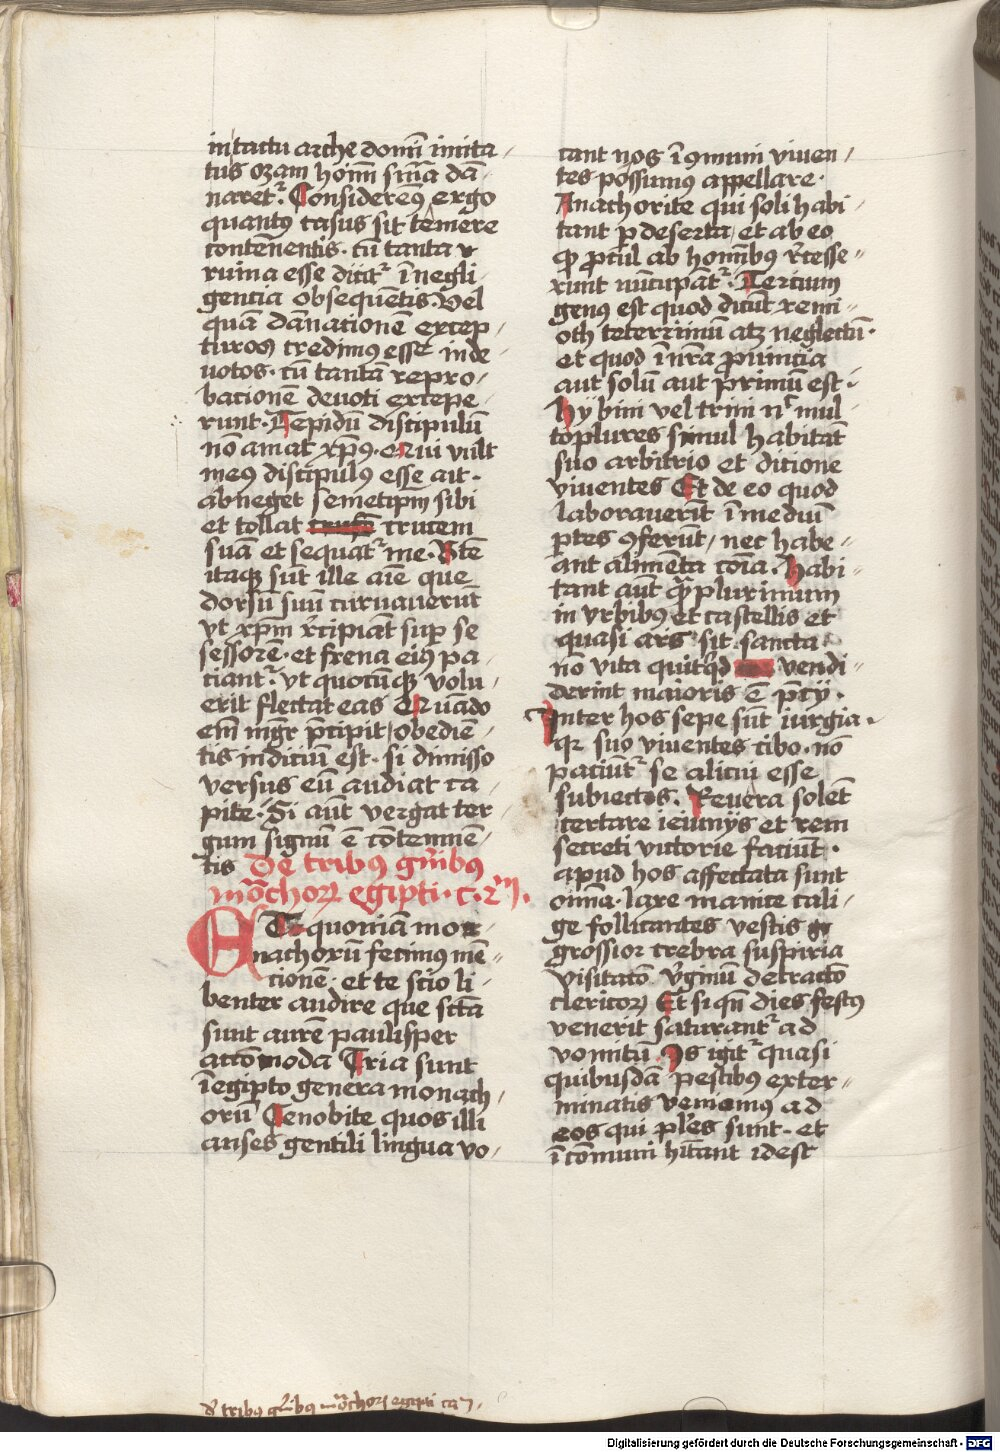 in tactu arche domī imita
tus ozam hoīm sūma dā
naretʳ. Consideremꝰ ergo
quantꝰ casus sit temere
contēnentis. cū tanta
ruina esse dicitʳ ī negli
gencia obsequētis. Vel
quā dānacionē excep
turos credimꝰ esse inde
uotos. cū tantā repro
bacionē deuoti excepe
runt. Tepidū discipulū
nō amat xp̄ꝰ. Qui vult
meꝰ discipulꝰ esse ait.
abneget semetip̄m sibi
et tollat crucem
suā et sequatʳ me. Iste
itaqꝫ sūt ille aīe que
dorsū suū curuauerūt
vt xp̄m r̄cipiāt sup̱ se
sessorē. et frena eiꝰ pa
ciantʳ. vt quocūqꝫ volu
erit flectat eas Quādo
em̄ mgr̄ p̄cipit / obediē
tis indiciū est. si dimisso
versus eū audiat ca
pite. Si aūt vergat ter
gum signū ē cōtemnē
tis De tribꝰ gn̄ibꝰ
mōchoꝝ egipti. c.
Et quoniam mo
nachorū fecimꝰ mē
cionē. et te scio li
benter audire que sctā
sunt aurē paulisper
accōmoda Tria sunt
ī egipto genera monach
orū Cenobite quos illi
auses gentili lingua vo
cant nos ī ꝯmuni viuen
tes possumꝰ appellare.
Anachorite qui soli habi
tant p̱ deserta / et ab eo
ꝙ ꝓcul ab hoīnibꝰ r̄cesse
runt nūcupātʳ. Tercium
genꝰ est quod dicūt remi
oth teterrimū atꝫ neglectū.
et quod ī nr̄a ꝓuincia
aut solū aut primū est.
Hy bini vel trini nʳ mul
toplures simul habitāt
suo arbitrio et dicione
viuentes Et de eo quod
laborauerīt ī mediū
p̱tes ꝯferūt / nec habe
ant alimēta cōia. Habi
tant aūt qᷓ plurimum
in vrbibꝰ et castellis et
quasi ars sit sancta
nō vita quicq̇d vendi
derint maioris ē p̄cij.
Inter hos sepe sūt iurgia.
qꝛ suo viuentes cibo. nō
paciūtʳ se alicui esse
subiectos. Reuera solēt
certare ieiunijs et rem
secreti victorie faciūt.
apud hos affectata sunt
oīna. laxe manice cali
ge follicantes vestis
grossior crebra suspiria
visitatō v̄gīnū detractō
clericoꝝ Et si qn̄ dies festꝰ
venerit saturantʳ ad
vomitū. Is igitʳ quasi
quibusdā pestibꝰ exter
minatis veniamꝰ ad
eos qui pl̄es sunt. et
ī cōmuni hītant idest
d̄ tribꝰ gn̄ibꝰ mōchoꝝ egipti ca
Digitalisierung gefördert durch die Deutsche Forschungsgemeinschaft - DFG